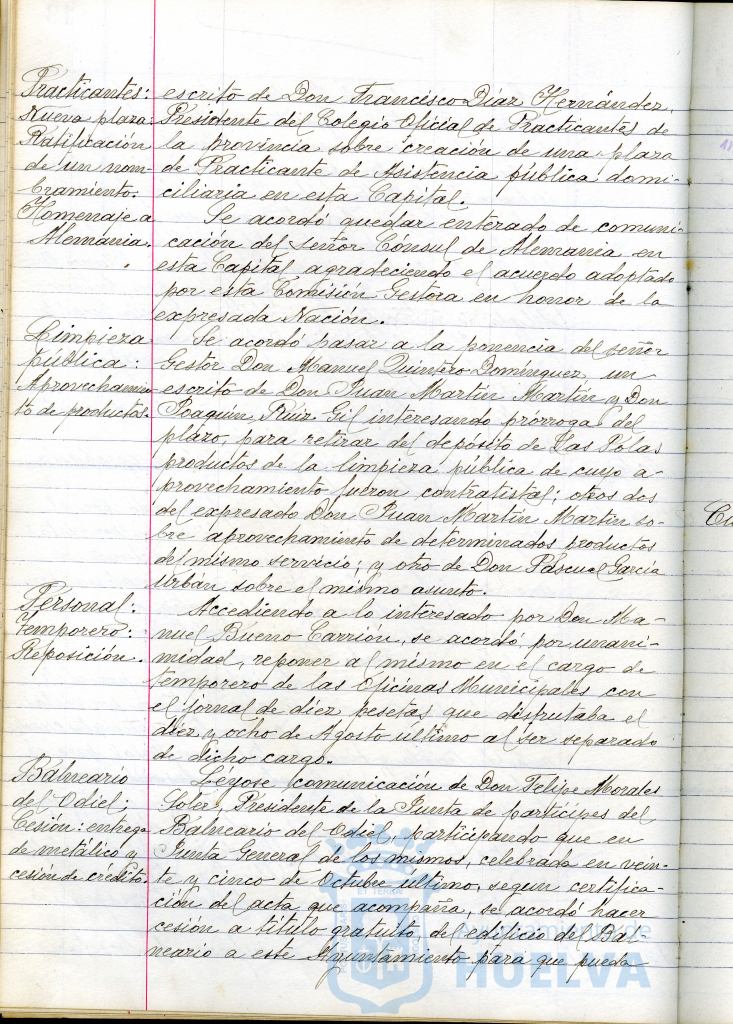 Practicantes:
Nueva plaza.
Ratificación
de un nom-
bramiento.
Homenaje a
Alemania.
escrito de Don Francisco Díaz Hernández,
Presidente del Colegio Oficial de Practicantes de
la provincia sobre creación de una plaza
de Practicante de Asistencia pública domi-
ciliaria en esta Capital.
Se acordó quedar enterado de comuni-
cación del señor Cónsul de Alemania en
esta Capital agradeciendo el acuerdo adoptado
por esta Comisión Gestora en honor de la
expresada Nación.
Limpieza
pública:
Aprovechamien-
to de productos.
Se acordó pasar a la ponencia del señor
Gestor Don Manuel Quintero Domínguez un
escrito de Don Juan Martín Martín y Don
Joaquín Ruiz Gil interesando prórroga del
plazo, para retirar del depósito de Las Polas
productos de la limpieza pública de cuyo a-
provechamiento fueron contratistas; otros dos
del expresado Don Juan Martín Martín so-
bre aprovechamiento de determinados productos
del mismo servicio; y otro de Don Pascual García
Urbán sobre el mismo asunto.
Personal:
temporero:
Reposición.
Accediendo a lo interesado por Don Ma-
nuel Bueno Carrión, se acordó por unani-
midad, reponer al mismo en el cargo de
temporero de las Oficinas Municipales con
el jornal de diez pesetas que disfrutaba el
diez y ocho de Agosto último al ser separado
de dicho cargo.
Balneario
del Odiel;
Cesión: entrega
de metálico y
cesión de crédito.
Léyose comunicación de Don Felipe Morales
Soler, Presidente de la Junta de partícipes del
Balneario del Odiel, participando que en
Junta General de los mismos, celebrada en vein-
te y cinco de Octubre último, según certifica-
ción del acta que acompaña, se acordó hacer
cesión a título gratuito del edificio del Bal-
neario a este Ayuntamiento para que pueda
Ayuntamiento de
HUELVA